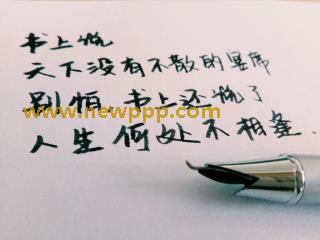 书上说
天下没有不散的宴席
别怕 书上还说了
www.newppp.com
人生何处不相逢.